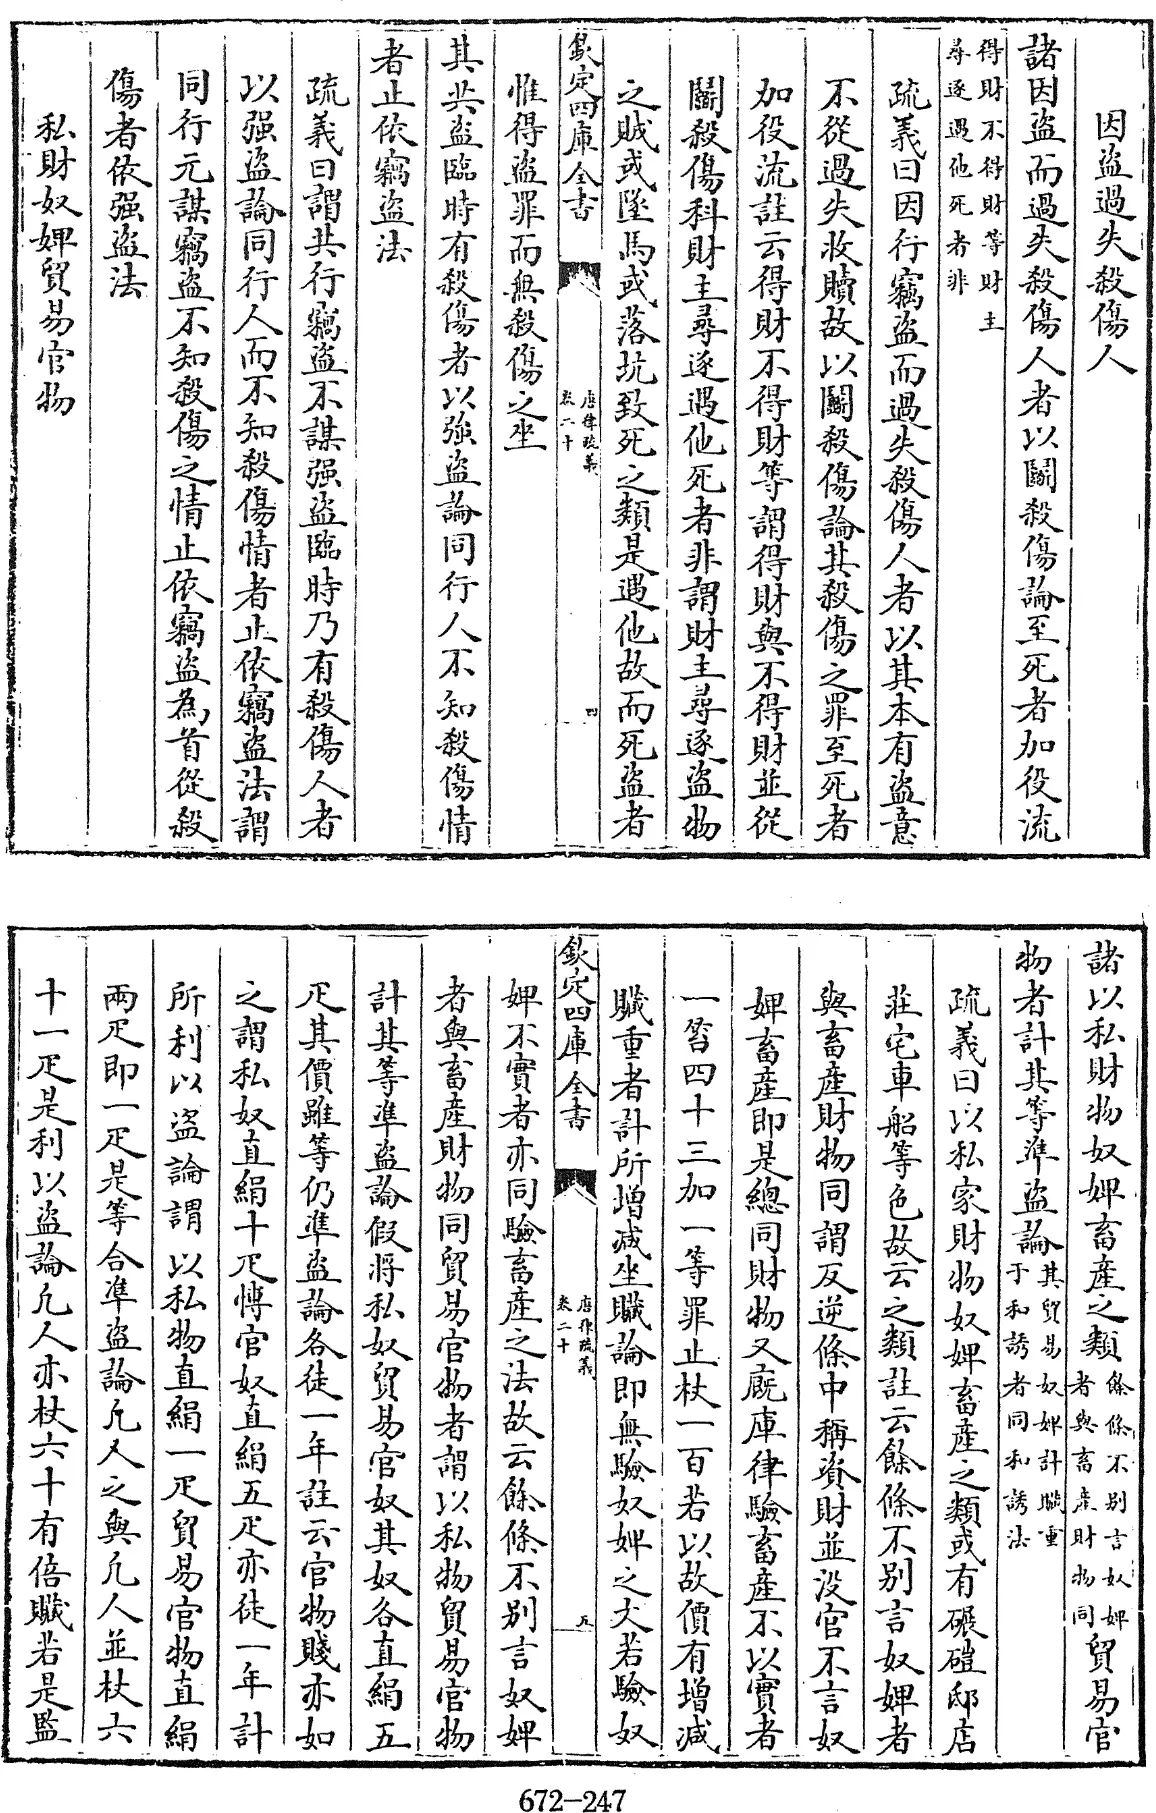 因盜過失殺傷人
諸因盜而過失殺傷人者以鬬殺傷論至死者加役流
得財不得財等財主
尋逐遇他死者非
疏義曰因行竊盜而過失殺傷人者以其本有盜意
不從過失收贖故以鬬殺傷論其殺傷之罪至死者
加役流註云得財不得財等謂得財與不得財並從
鬬殺傷科財主尋逐遇他死者非謂財主尋逐盜物
之賊或墜馬或落坑致死之類是遇他故而死盜者
欽定四庫全書
唐律疏義
卷二十
四
惟得盜罪而無殺傷之坐
其共盜臨時有殺傷者以強盜論同行人不知殺傷情
者止依竊盜法
疏義曰謂共行竊盜不謀强盜臨時乃有殺傷人者
以强盜論同行人而不知殺傷情者止依竊盜法謂
同行元謀竊盜不知殺傷之情止依竊盜為首從殺
傷者依强盜法
私財奴婢貿易官物
諸以私財物奴婢畜產之類餘條不别言奴婢者與畜產財物同貿易官
物者計其等準盜論其貿易奴婢計贓重于和誘者同和誘法
疏義曰以私家財物奴婢畜產之類或有碾磑邸店
莊宅車船等色故云之類註云餘條不别言奴婢者
與畜產財物同謂反逆條中稱資財並沒官不言奴
婢畜產即是總同財物又廐庫律驗畜產不以實者
一笞四十三加一等罪止杖一百若以故價有增減
贓重者計所增減坐贓論即無驗奴婢之文若驗奴
欽定四庫全書
唐律疏義
卷二十
五
婢不實者亦同驗畜產之法故云餘條不别言奴婢
者與畜產財物同貿易官物者謂以私物貿易官物
計其等準盜論假將私奴貿易官奴其奴各直絹五
疋其價雖等仍準盜論各徒一年註云官物賤亦如
之謂私奴直絹十疋愽官奴直絹五疋亦徒一年計
所利以盜論謂以私物直絹一疋貿易官物直絹
兩疋即一疋是等合準盜論凡人之與凡人並杖六
十一疋是利以盜論凡人亦杖六十有倍贓若是監
672-247